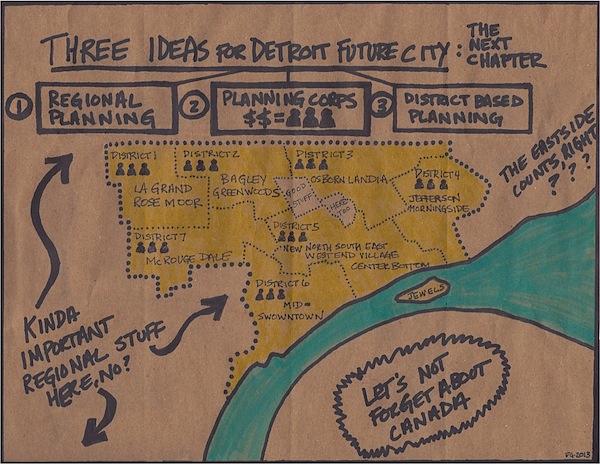 THREE IDEAS FOR DETROIT FUTURE CITY:
THE
NEXT
CHAPTER
1 REGIONAL
PLANNING
2 PLANNING CORPS
$$=
3 DISTRICT BASED
PLANNING
DISTRICT 1
LA GRAND
ROSE MOOR
DISTRICT 2
BAGLEY
GREENWOODS
DISTRICT 3
OSBORNLANDIA
GOOD
STUFF
HERE
TOO
DISTRICT 4
JEFFERSON
MORNINGSIDE
THE EASTSIDE
COUNTS, RIGHT
? ? ?
DISTRICT 5
NEW NORTH SOUTH EAST
WESTEND VILLAGE
CENTER BOTTOM
DISTRICT 7
MCROUGE DALE
DISTRICT 6
MID=
SWOWNTOWN
JEWELS
KINDA-
IMPORTANT
REGIONAL STUFF
HERE, NO?
LET'S NOT
FORGET ABOUT
CANADA